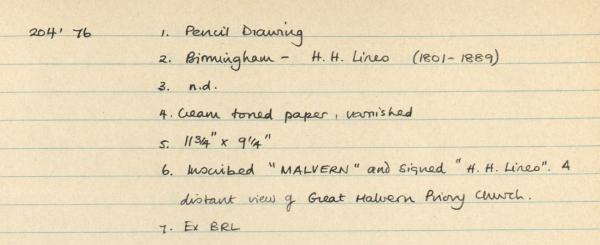 204' 76 1. Pencil Drawing
2. Birmingham - H. H. Lines (1801-1889)
3. n.d.
4. Cream toned paper, varnished
5. 11 3/4" x 9 1/4"
6. Inscribed "MALVERN" and signed "H. H. Lines". A
distant view of Great Malvern Priory Church.
7. Ex BRL